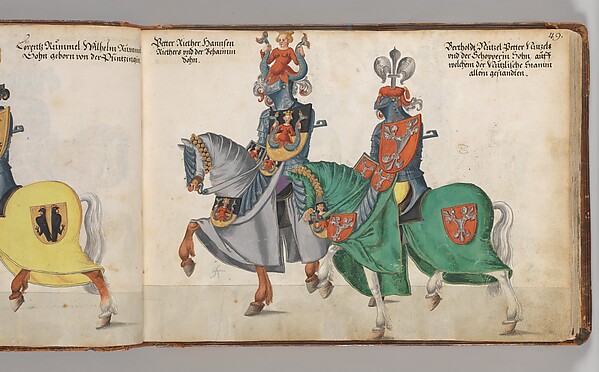 Lorentz Rummel Wilhelm Rummel
Sohn geborn von der Pfintzingin
Petter Riether Hannsen
Riethers vnd der Behaimin
Sohn.
49.
Berthold Nützel Petter Nützels
vnd der Schopperin Sohn, auff
welchem der Nützlische Stamm
allein gestanden.